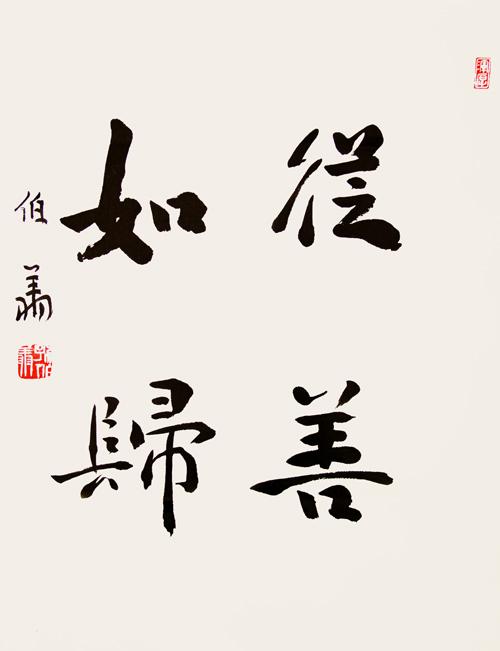 從善
如歸
伯翦